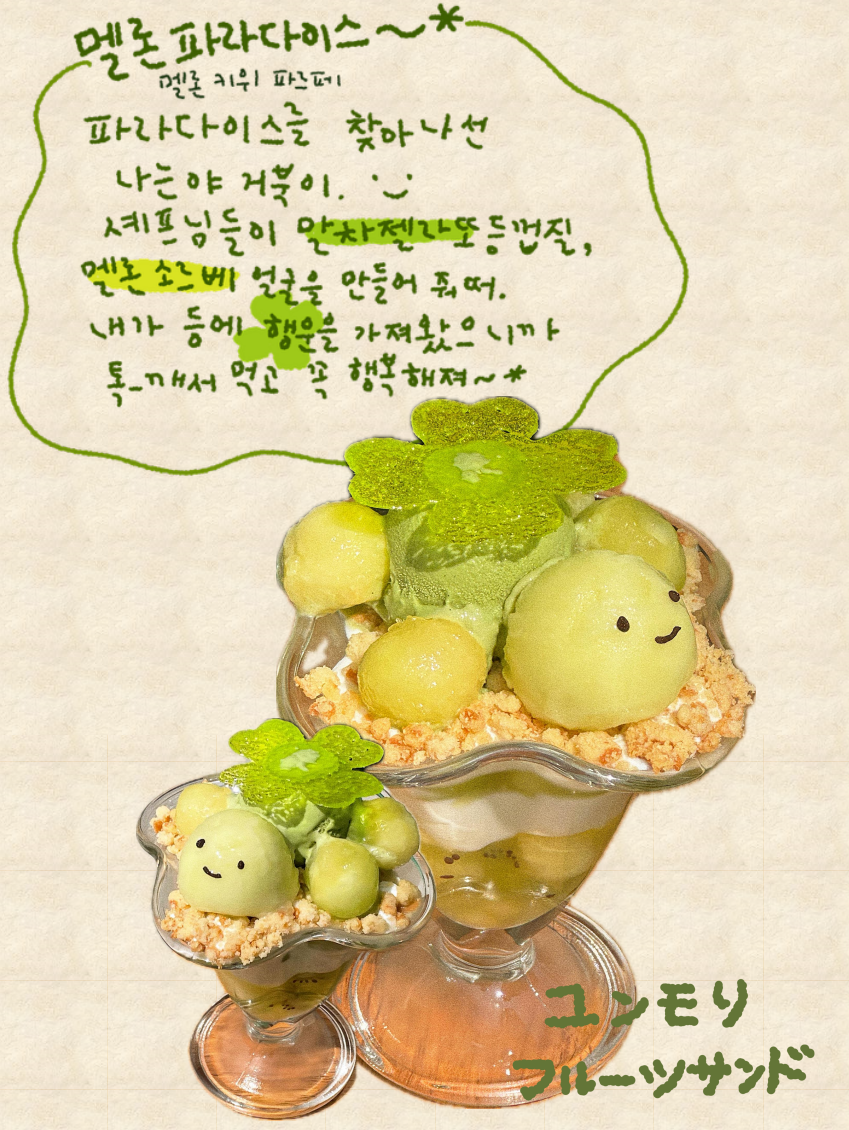 멜론 파라다이스~*
멜론 키위 파르페
파라다이스를 찾아나선
나는야 거북이.
셰프님들이 말차젤라또 등껍질,
멜론 소르베 얼굴을 만들어 줘떠.
내가 등에 행운을 가져왔으니까
톡_깨서 먹고 꼭 행복해져~*
ユンモリ
フルーツサンド